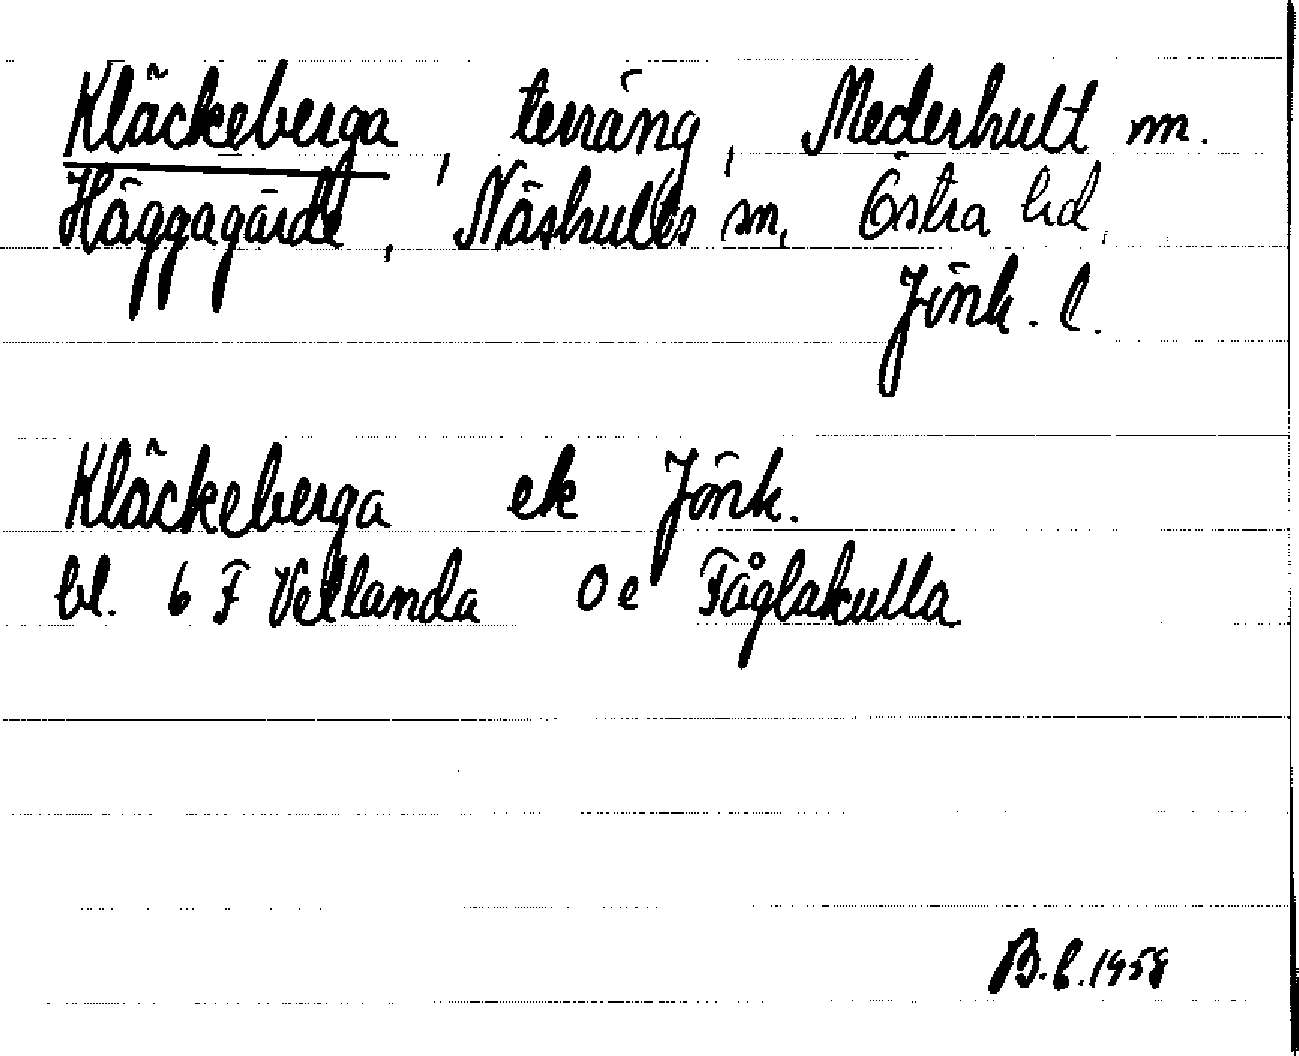 Kläckeberga, terräng, Mederhult m.
Häggagärde, Näshults sn, Östra hd,
Jönk. l.
Kläckeberga ek Jönk.
bl. 6 F Vetlanda 0 e Fåglakulla
B.L. 1958